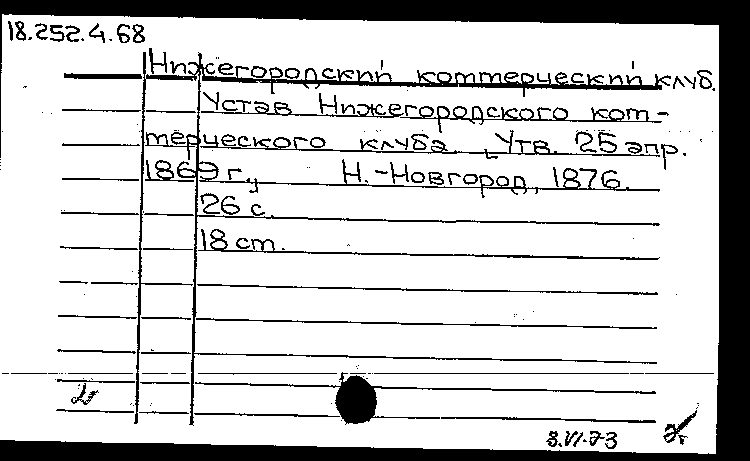 18.252.4.68
Нижегородский коммерческий клуб.
Устав Нижегородского ком-
мерческого клуба. [Утв. 25 апр.
1869 г.] Н.-Новгород, 1876.
26 с.
18 cm.
3.VI.73